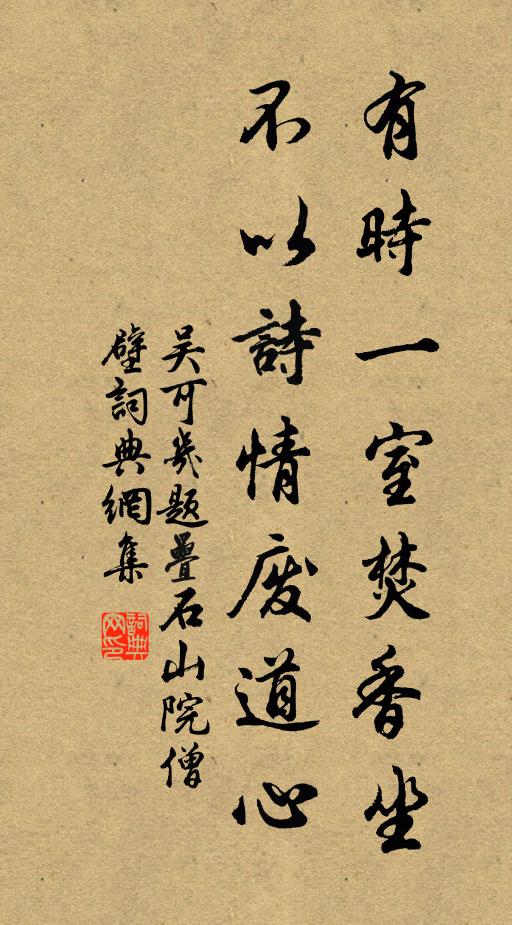 有時一室焚香坐
不以詩情廢道心
吴可幾题疊石山院僧
壁詞典網集
詞典网印